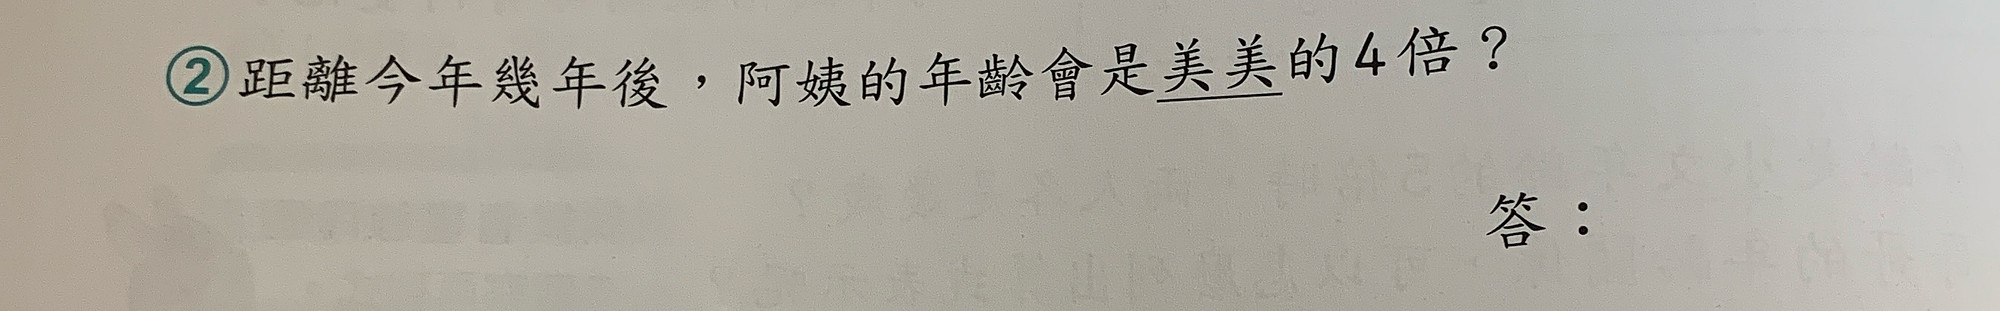 ②距離今年幾年後，阿姨的年齡會是美美的4倍？
答：